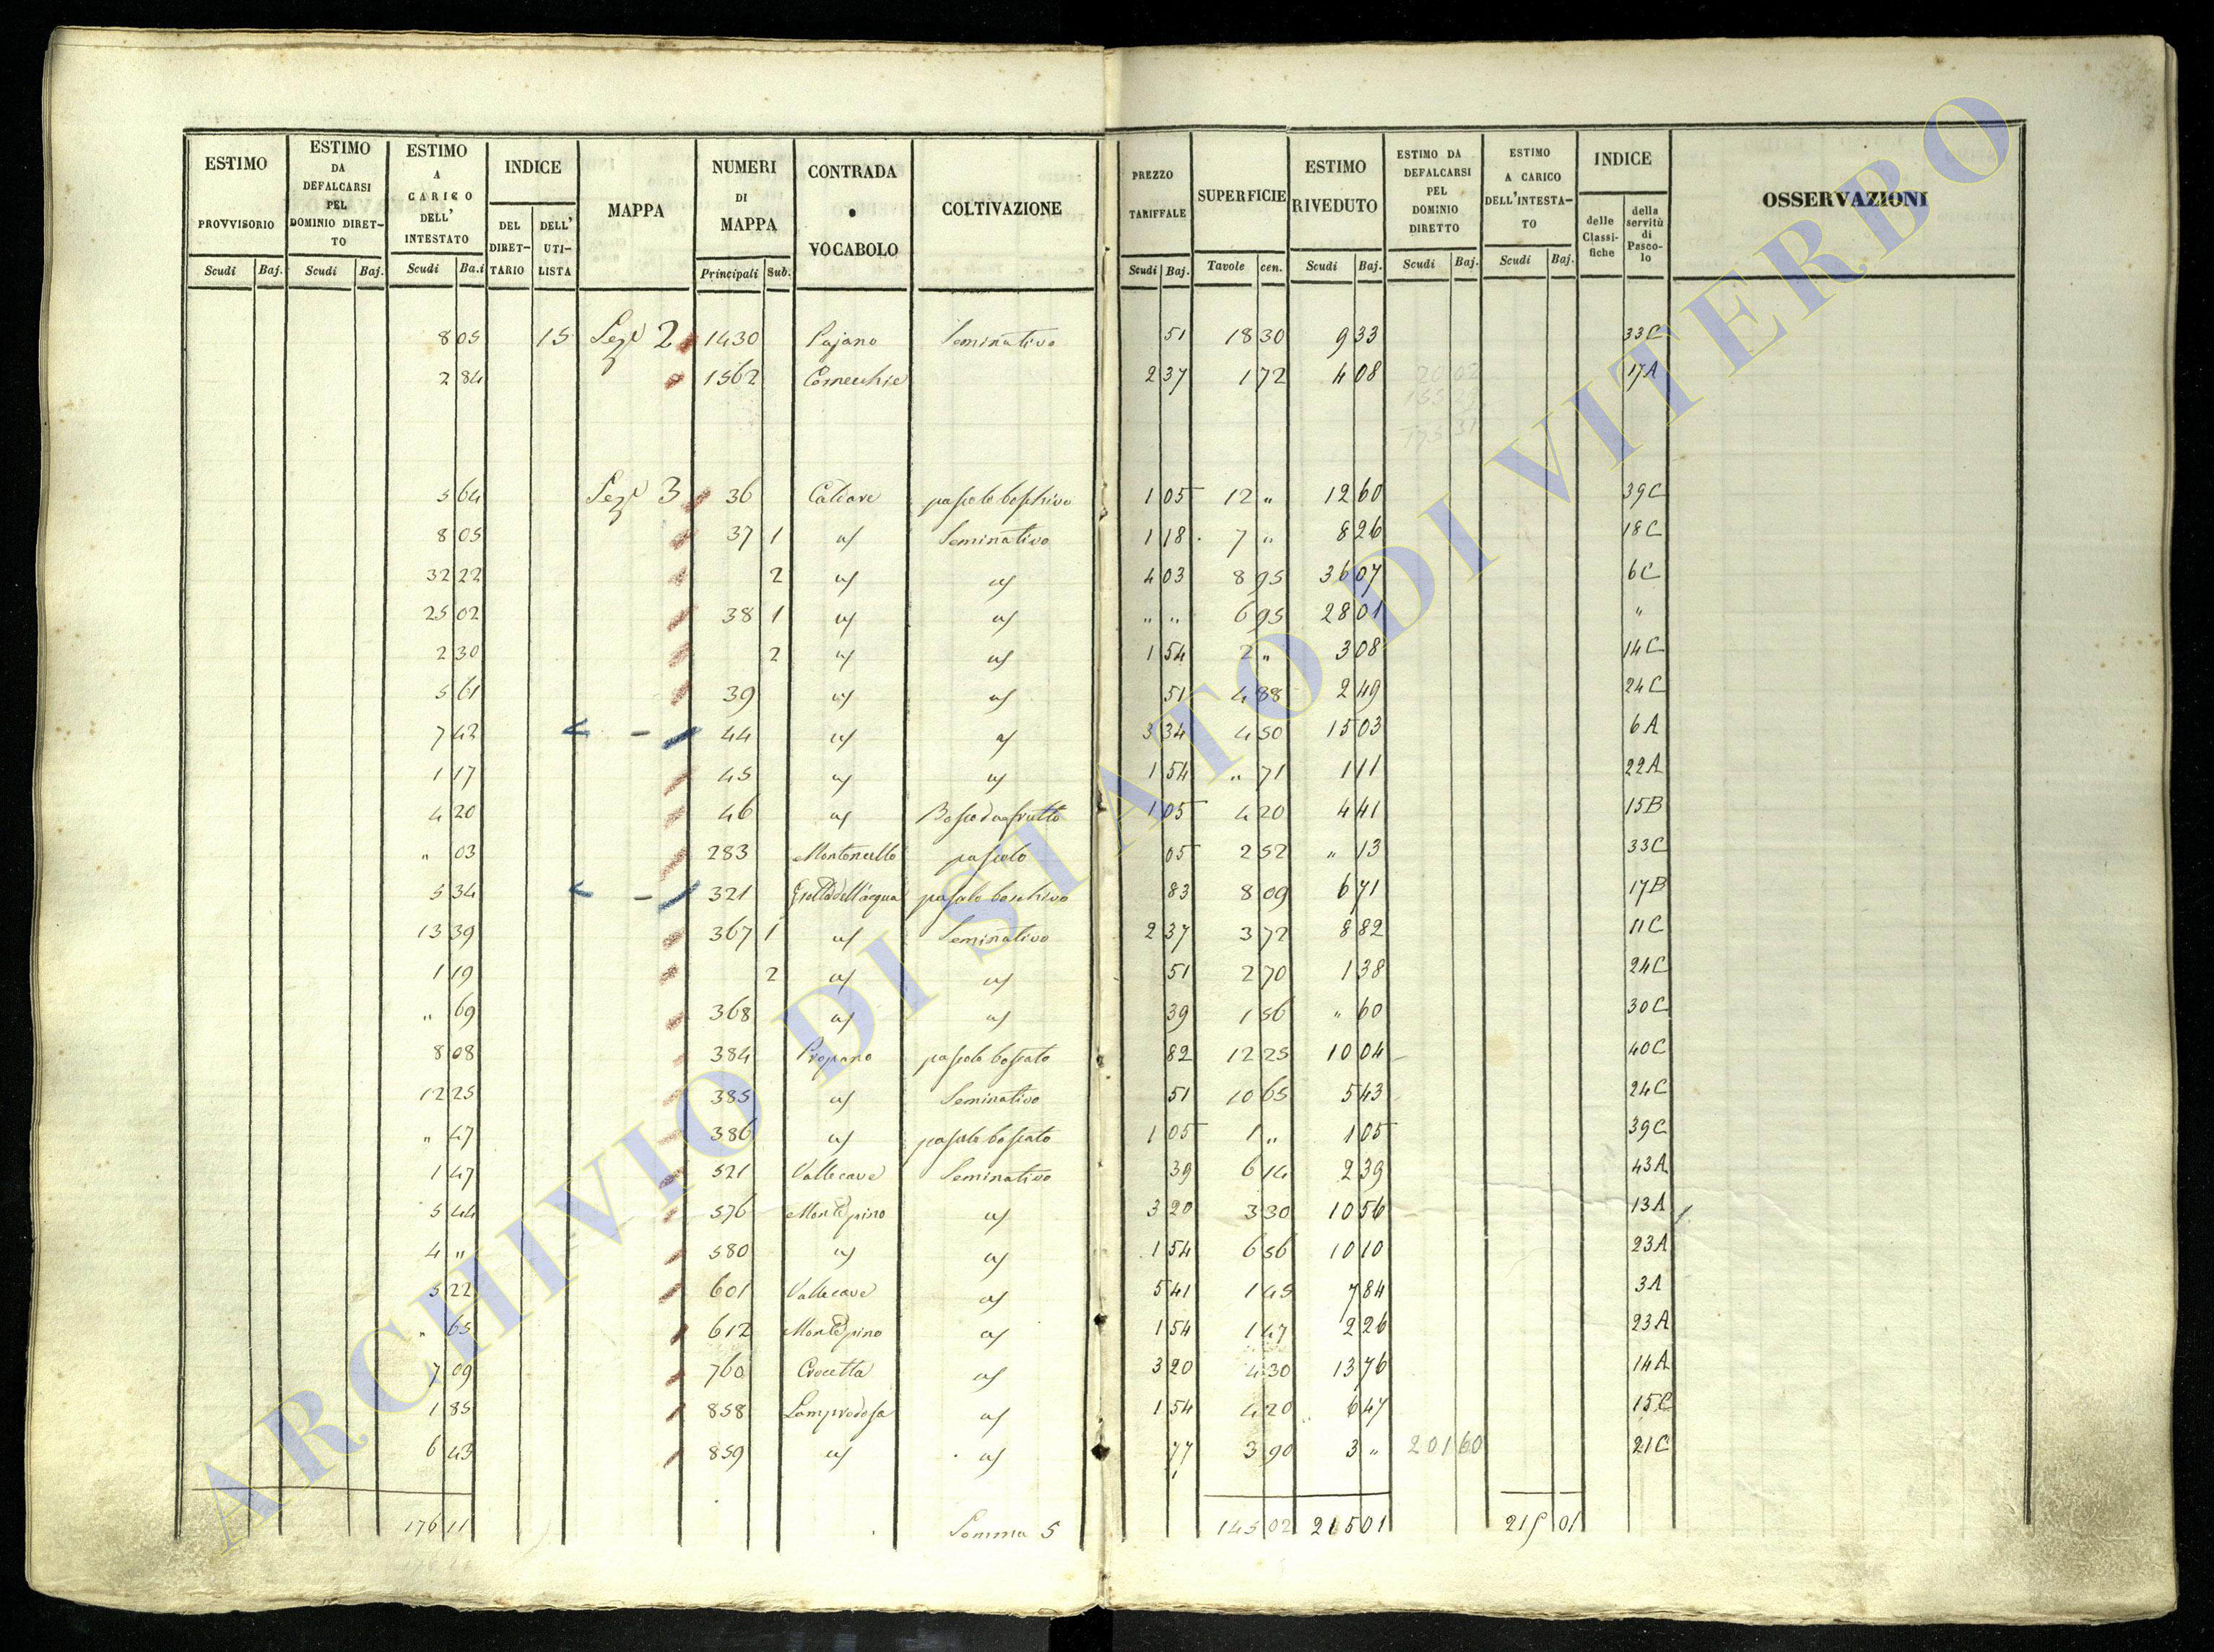 ESTIMO PROVVISORIO Scudi Baj. | ESTIMO DA DEFALCARSI PEL DOMINIO DIRETTO Scudi Baj. | ESTIMO A CARICO DELL' INTESTATO Scudi Ba.i | INDICE DEL DIRETTARIO DELL' UTILISTA | MAPPA | NUMERI DI MAPPA Principali Sub. | CONTRADA o VOCABOLO | COLTIVAZIONE | PREZZO TARIFFALE Scudi Baj. | SUPERFICIE Tavole cen. | ESTIMO RIVEDUTO Scudi Baj. | ESTIMO DA DEFALCARSI PEL DOMINIO DIRETTO Scudi Baj. | ESTIMO A CARICO DELL'INTESTATO Scudi Baj. | INDICE delle Classifiche della servitù di Pascolo | OSSERVAZIONI
8 05 15 Sez.e 2 1430 Pajano Seminativo 51 18 30 9 33 33C
2 84 1562 Cornecchie 2 37 1 72 4 08 17A
5 64 Sez.e 3 36 Calcare pascolo boschivo 1 05 12 " 12 60 39C
8 05 37 1 id Seminativo 1 18 7 " 8 26 18C
32 22 2 id id 4 03 8 95 36 07 6C
25 02 38 1 id id " " 6 95 28 01 "
2 30 2 id id 1 54 2 " 3 08 14C
5 61 39 id id 51 4 88 2 49 24C
7 42 44 id id 3 34 4 50 15 03 6A
1 17 45 id id 1 54 " 71 1 11 22A
4 20 46 id Bosco da frutto 1 05 4 20 4 41 15B
" 03 283 Montoncello pascolo 05 2 52 " 13 33C
5 34 321 dell'acqua pascolo boschivo 83 8 09 6 71 17B
13 39 367 1 id Seminativo 2 37 3 72 8 82 11C
1 19 2 id id 51 2 70 1 38 24C
" 69 368 id id 39 1 56 " 60 30C
8 08 384 Propano pascolo boscato 82 12 25 10 04 40C
12 25 385 id Seminativo 51 10 65 5 43 24C
" 47 386 id pascolo boscato 1 05 1 " 1 05 39C
1 47 521 Vallecave Seminativo 39 6 14 2 39 43A
5 44 576 Monte pino id 3 20 3 30 10 56 13A
4 " 580 id id 1 54 6 56 10 10 23A
5 22 601 Vallecave id 5 41 1 45 7 84 3A
" 65 612 Monte pino id 1 54 1 47 2 26 23A
7 09 760 Crocetta id 3 20 4 30 13 76 14A
1 85 858 Lamprodosa id 1 54 4 20 6 47 15C
6 43 859 id id 77 3 90 3 " 201 60 21C
176 11 Somma S 145 02 215 01 215 01
ARCHIVIO DI STATO DI VITERBO